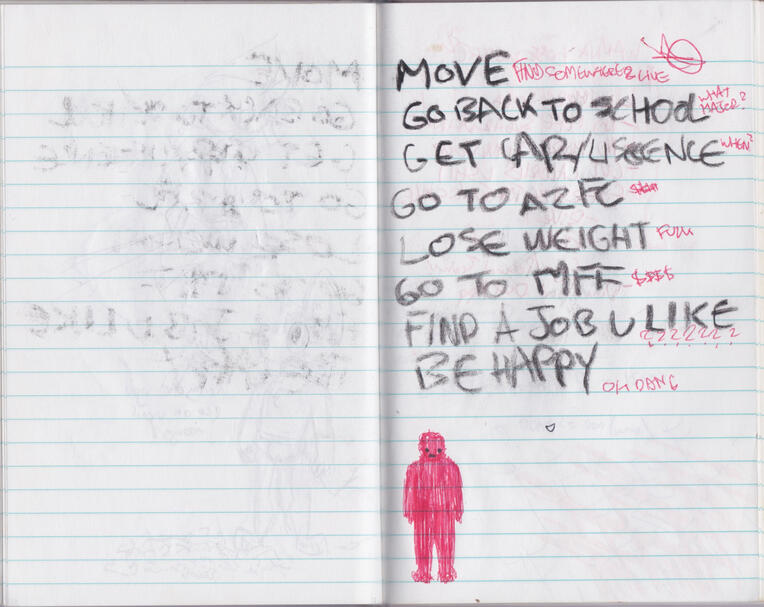 MOVE FIND SOMEWHERE 2 LIVE
GO BACK TO SCHOOL WHAT MAJOR?
GET CAR/LISCENCE WHEN?
GO TO AZFC
LOSE WEIGHT
GO TO MFF $$$$
FIND A JOB U LIKE
???????
BE HAPPY OH DANG